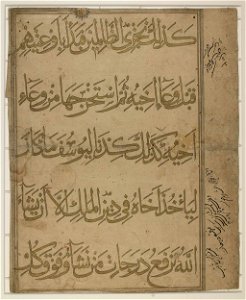 كذلك نجزي الظالمين فبدأ بأوعيتهم
قبل وعاء أخيه ثم استخرجها من وعاء
أخيه كذلك كدنا ليوسف ما كان
ليأخذ أخاه في دين الملك إلا أن يشاء
الله نرفع درجات من نشاء وفوق كل